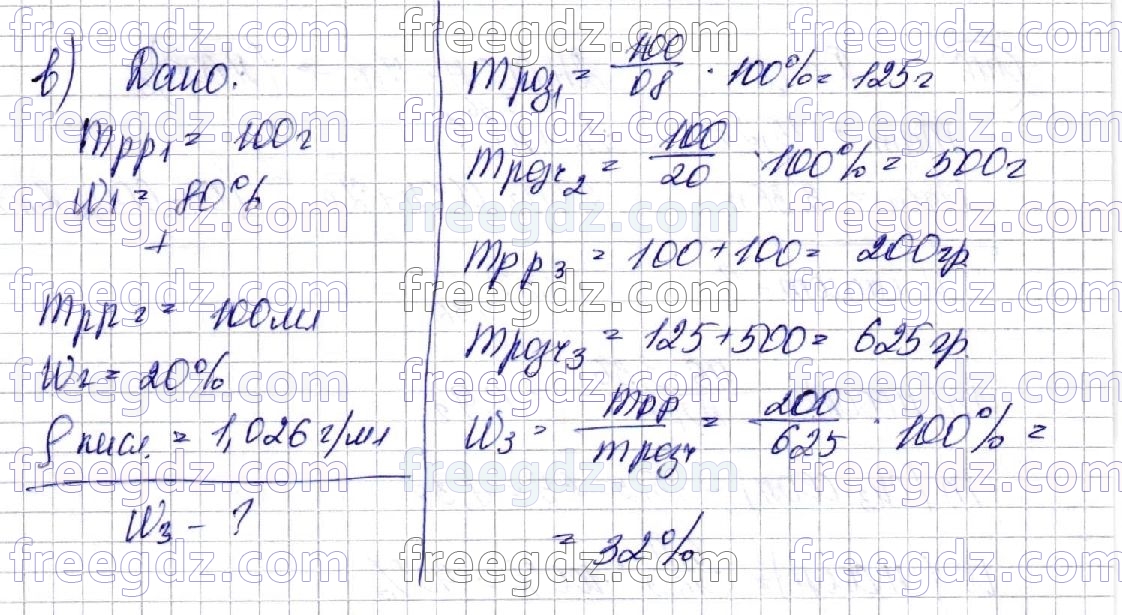 в) Дано:
mрр1 = 100г
W1 = 80%
+
mрр2 = 100мл
W2 = 20%
ρ кисл. = 1,026 г/мл
W3 - ?
mр-ра1 = 100/08 · 100% = 125г
mр-ра2 = 100/20 · 100% = 500г
mрр3 = 100 + 100 = 200гр.
mр-ра3 = 125 + 500 = 625гр.
W3 = mрр/mр-ра = 200/625 · 100% =
= 32%
freegdz.com